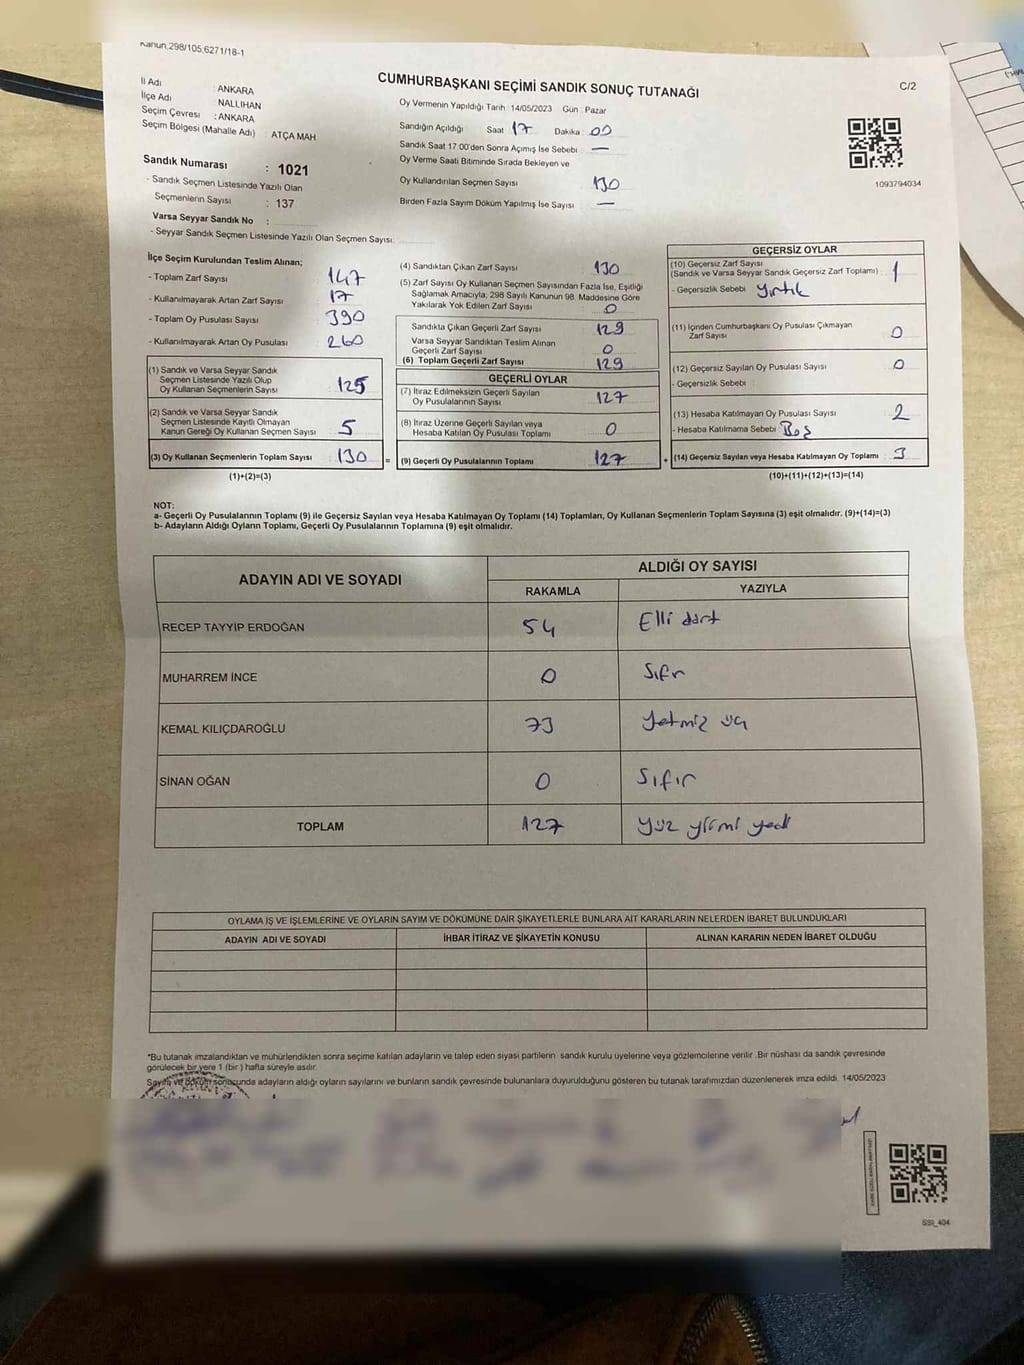 Kanun,298/105,6271/18-1
CUMHURBAŞKANI SEÇİMİ SANDIK SONUÇ TUTANAĞI
C/2
İl Adı : ANKARA
İlçe Adı NALLIHAN
Seçim Çevresi : ANKARA
Seçim Bölgesi (Mahalle Adı) : ATÇA MAH.
Sandık Numarası : 1021
- Sandık Seçmen Listesinde Yazılı Olan
Seçmenlerin Sayısı : 137
Varsa Seyyar Sandık No :
- Seyyar Sandık Seçmen Listesinde Yazılı Olan Seçmen Sayısı:
Oy Vermenin Yapıldığı Tarih : 14/05/2023 Gün : Pazar
Sandığın Açıldığı Saat 17 Dakika : 00
Sandık Saat 17:00'den Sonra Açımış İse Sebebi : —
Oy Verme Saati Bitiminde Sırada Bekleyen ve
Oy Kullandırılan Seçmen Sayısı 130
Birden Fazla Sayım Döküm Yapılmış İse Sayısı —
1093794034
İlçe Seçim Kurulundan Teslim Alınan;
- Toplam Zarf Sayısı : 147
- Kullanılmayarak Artan Zarf Sayısı : 17
- Toplam Oy Pusulası Sayısı : 390
- Kullanılmayarak Artan Oy Pusulası : 260
(1) Sandık ve Varsa Seyyar Sandık
Seçmen Listesinde Yazılı Olup
Oy Kullanan Seçmenlerin Sayısı : 125
(2) Sandık ve Varsa Seyyar Sandık
Seçmen Listesinde Kayıtlı Olmayan
Kanun Gereği Oy Kullanan Seçmen Sayısı : 5
(3) Oy Kullanan Seçmenlerin Toplam Sayısı : 130
(1)+(2)=(3)
(4) Sandıktan Çıkan Zarf Sayısı : 130
(5) Zarf Sayısı Oy Kullanan Seçmen Sayısından Fazla İse, Eşitliği
Sağlamak Amacıyla; 298 Sayılı Kanunun 98. Maddesine Göre
Yakılarak Yok Edilen Zarf Sayısı : 0
Sandıkta Çıkan Geçerli Zarf Sayısı : 129
Varsa Seyyar Sandıktan Teslim Alınan
Geçerli Zarf Sayısı : 0
(6) Toplam Geçerli Zarf Sayısı : 129
GEÇERLİ OYLAR
(7) İtiraz Edilmeksizin Geçerli Sayılan
Oy Pusulalarının Sayısı : 127
(8) İtiraz Üzerine Geçerli Sayılan veya
Hesaba Katılan Oy Pusulası Toplamı : 0
= (9) Geçerli Oy Pusulalarının Toplamı : 127
GEÇERSİZ OYLAR
(10) Geçersiz Zarf Sayısı
(Sandık ve Varsa Seyyar Sandık Geçersiz Zarf Toplamı) : 1
- Geçersizlik Sebebi : Yırtık
(11) İçinden Cumhurbaşkanı Oy Pusulası Çıkmayan
Zarf Sayısı : 0
(12) Geçersiz Sayılan Oy Pusulası Sayısı : 0
- Geçersizlik Sebebi :
(13) Hesaba Katılmayan Oy Pusulası Sayısı : 2
- Hesaba Katılmama Sebebi : Boş
+ (14) Geçersiz Sayılan veya Hesaba Katılmayan Oy Toplamı : 3
(10)+(11)+(12)+(13)=(14)
NOT:
a- Geçerli Oy Pusulalarının Toplamı (9) ile Geçersiz Sayılan veya Hesaba Katılmayan Oy Toplamı (14) Toplamları, Oy Kullanan Seçmenlerin Toplam Sayısına (3) eşit olmalıdır. (9)+(14)=(3)
b- Adayların Aldığı Oyların Toplamı, Geçerli Oy Pusulalarının Toplamına (9) eşit olmalıdır.
ADAYIN ADI VE SOYADI
ALDIĞI OY SAYISI
RAKAMLA YAZIYLA
RECEP TAYYİP ERDOĞAN 54 Elli dört
MUHARREM İNCE 0 Sıfır
KEMAL KILIÇDAROĞLU 73 Yetmiz üç
SİNAN OĞAN 0 Sıfır
TOPLAM 127 Yüz yirmi yedi
OYLAMA İŞ VE İŞLEMLERİNE VE OYLARIN SAYIM VE DÖKÜMÜNE DAİR ŞİKAYETLERLE BUNLARA AİT KARARLARIN NELERDEN İBARET BULUNDUKLARI
ADAYIN ADI VE SOYADI İHBAR İTİRAZ VE ŞİKAYETİN KONUSU ALINAN KARARIN NEDEN İBARET OLDUĞU
*Bu tutanak imzalandıktan ve mühürlendikten sonra seçime katılan adayların ve talep eden siyasi partilerin sandık kurulu üyelerine veya gözlemcilerine verilir. Bir nüshası da sandık çevresinde
görülecek bir yere 1 (bir ) hafta süreyle asılır.
Sayım ve döküm sonucunda adayların aldığı oyların sayılarını ve bunların sandık çevresinde bulunanlara duyurulduğunu gösteren bu tutanak tarafımızdan düzenlenerek imza edildi. 14/05/2023
SSI_404